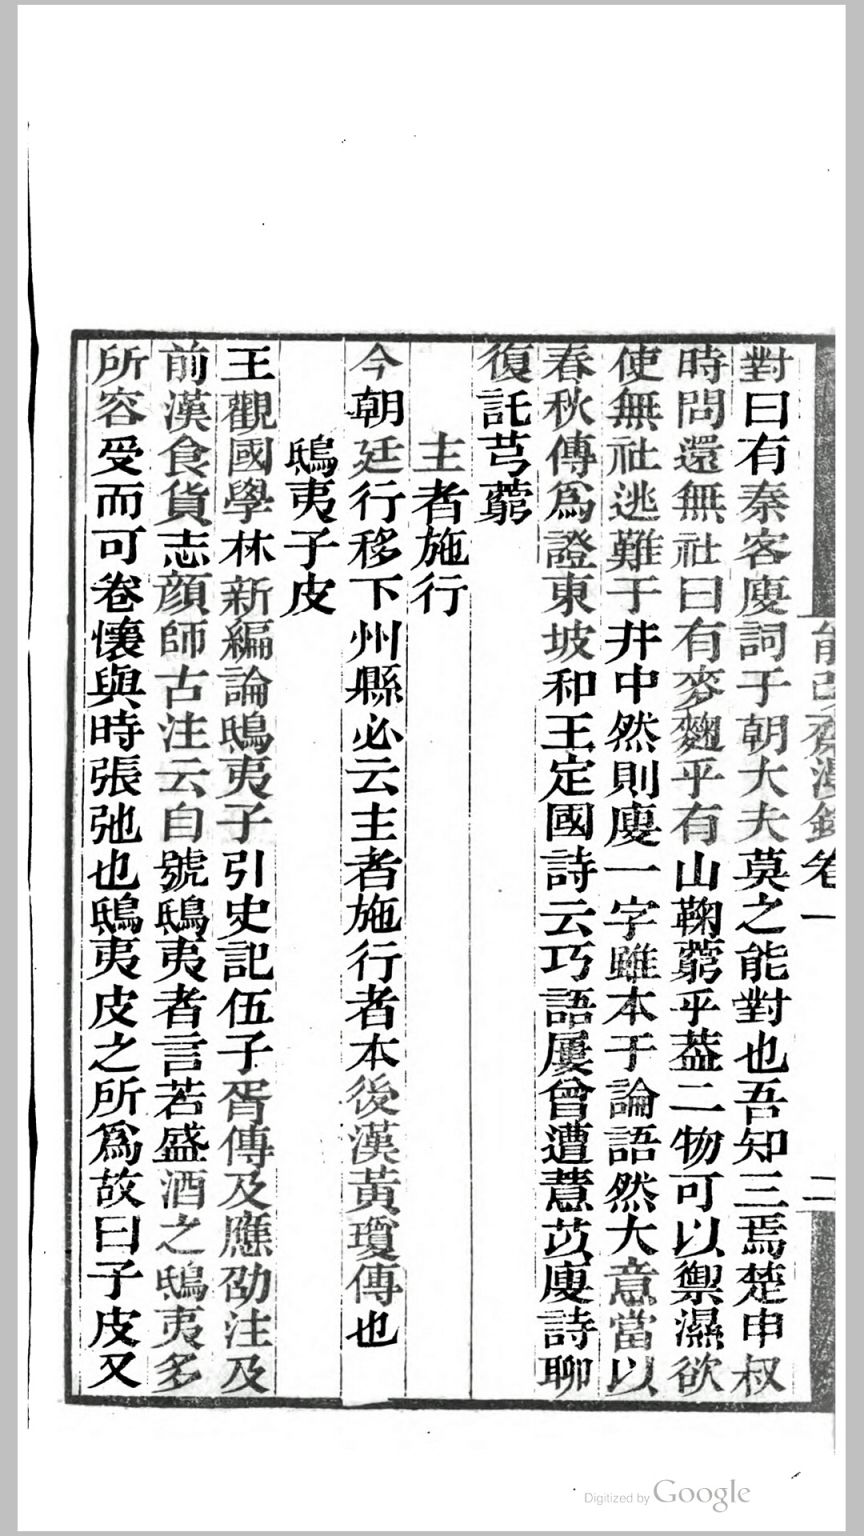 能改齋漫錄卷一
二
對曰有秦客廋詞于朝大夫莫之能對也吾知三焉楚申叔
時問還無社曰有麥麴乎有山鞠藭乎葢二物可以禦濕欲
使無社逃難于井中然則廋一字雖本于論語然大意當以
春秋傳爲證東坡和王定國詩云巧語屢曾遭薏苡廋詩聊
復託芎藭
主者施行
今朝廷行移下州縣必云主者施行者本後漢黃瓊傳也
鴟夷子皮
王觀國學林新編論鴟夷子引史記伍子胥傳及應劭注及
前漢食貨志顔師古注云自號鴟夷者言若盛酒之鴟夷多
所容受而可卷懷與時張弛也鴟夷皮之所爲故曰子皮又
Digitized by Google